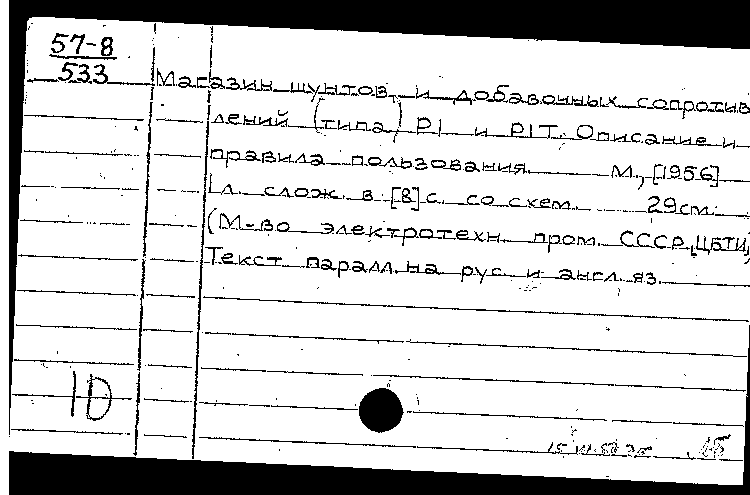 57-8
533
Магазин шунтов и добавочных сопротив
лений (типа) Р1 и Р1Т. Описание и
правила пользования. М., [1956]
1 л. слож. в [8] с. со схем. 29см.
(М-во электротехн. пром. СССР, ЦБТИ)
Текст паралл. на рус. и англ. яз.
10